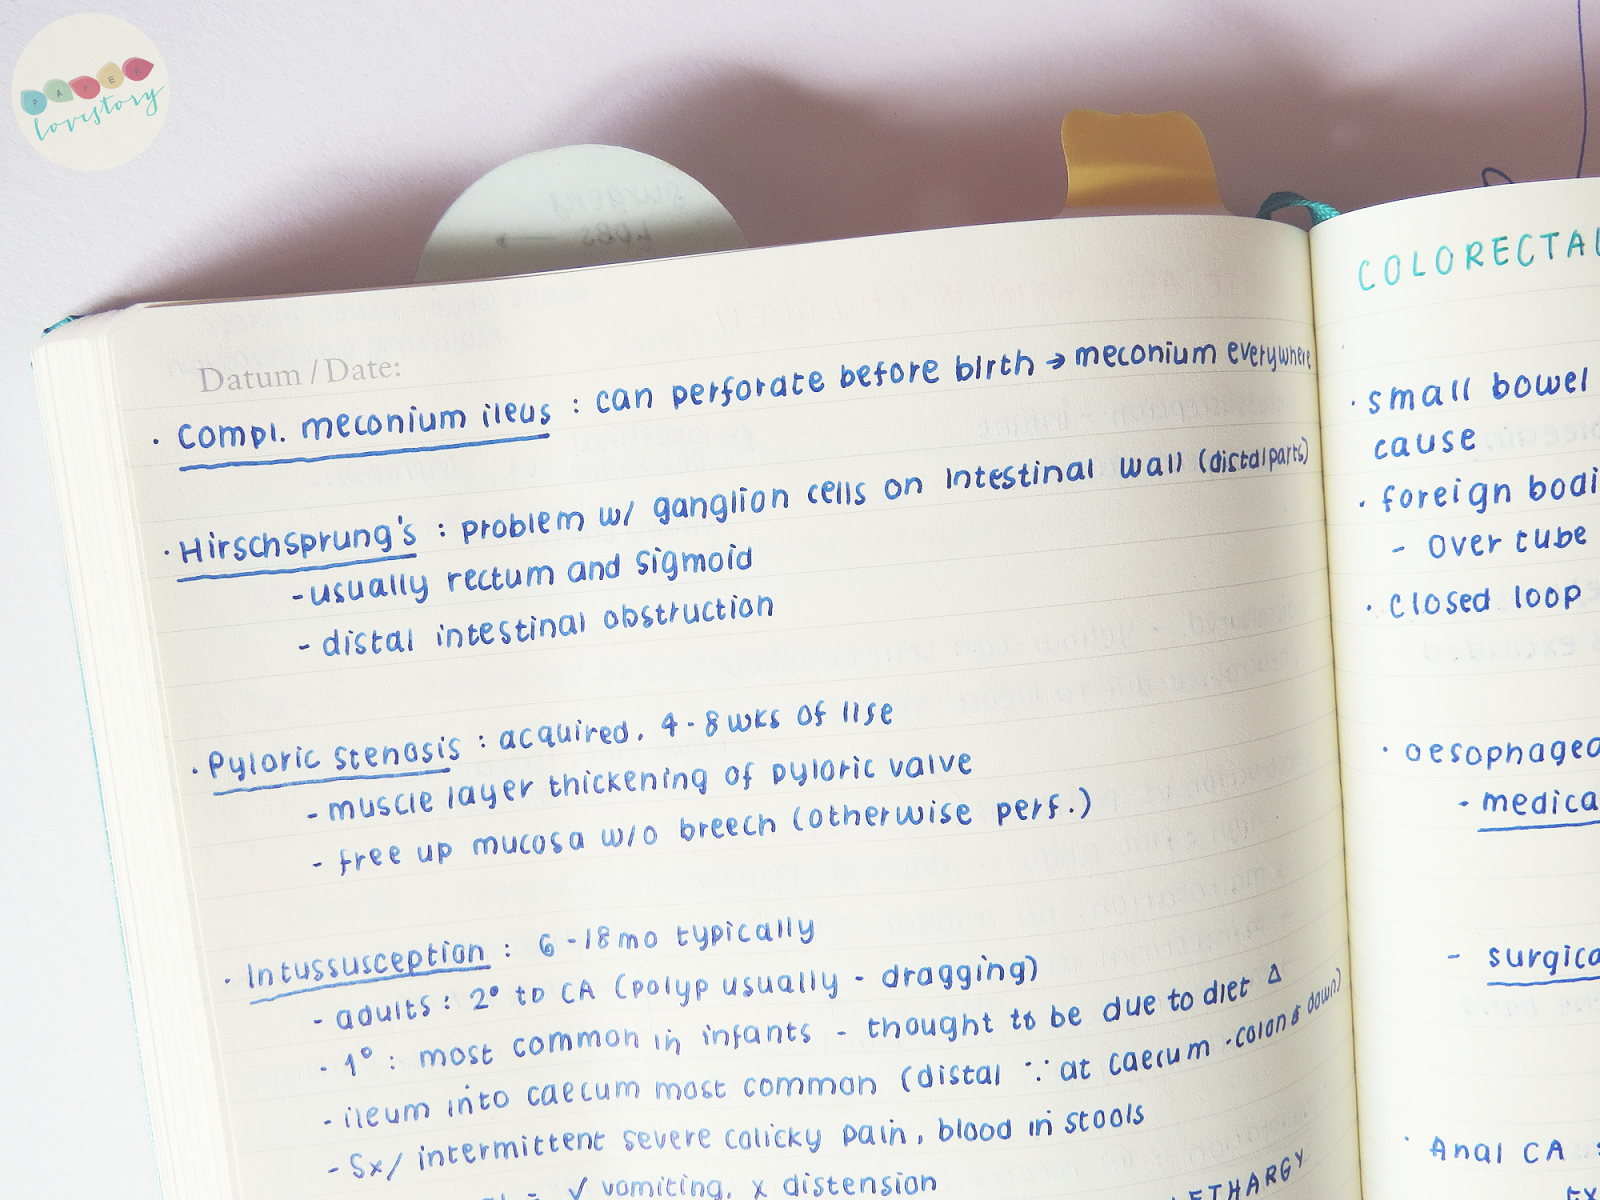 PAPER
lovestory
Datum / Date:
· Compl. meconium ileus : can perforate before birth → meconium everywhere
· Hirschsprung's : problem w/ ganglion cells on intestinal wall (distal parts)
- usually rectum and sigmoid
- distal intestinal obstruction
· Pyloric stenosis : acquired, 4-8 wks of life
- muscle layer thickening of pyloric valve
- free up mucosa w/o breech (otherwise perf.)
· Intussusception : 6-18mo typically
- adults : 2° to CA (polyp usually - dragging)
- 1° : most common in infants - thought to be due to diet Δ
- ileum into caecum most common (distal ∵ at caecum - colon & down)
- Sx/ intermittent severe colicky pain, blood in stools
√ vomiting, x distension
LETHARGY
COLORECTAL
· small bowel
cause
· foreign bodi
- over tube
· closed loop
· oesophagea
- medica
- surgica
· Anal CA :
tx